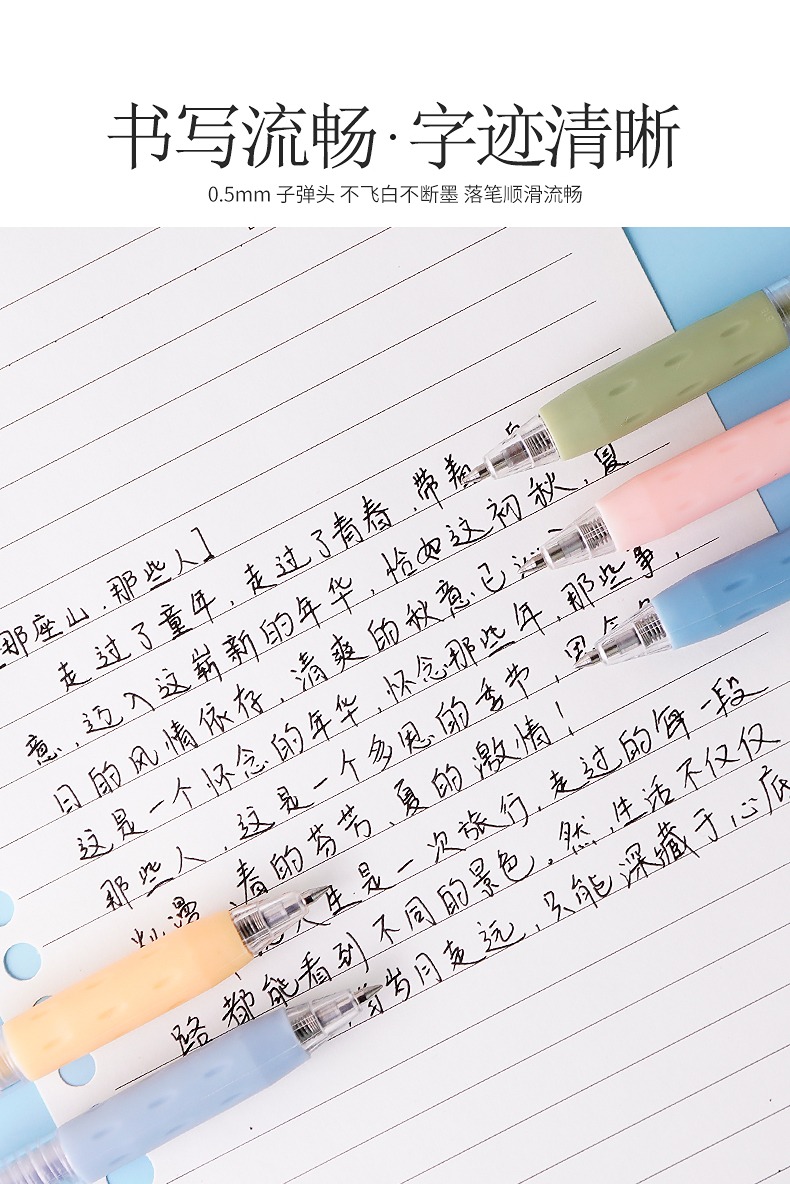 书写流畅·字迹清晰
0.5mm 子弹头 不飞白不断墨 落笔顺滑流畅
那座山.那些人】
走过了童年,走过了青春.带着
意,迈入这崭新的年华,恰如这初秋,夏
日的风情依存,清爽的秋意已
这是一个怀念的年华,怀念那些年,那些事,
那些人,这是一个多思的季节,思念
烂漫、春的芬芳、夏的激情!
人生是一次旅行,走过的每一段
路都能看到不同的景色,然,生活不仅仅
岁月走远,只能深藏于心底